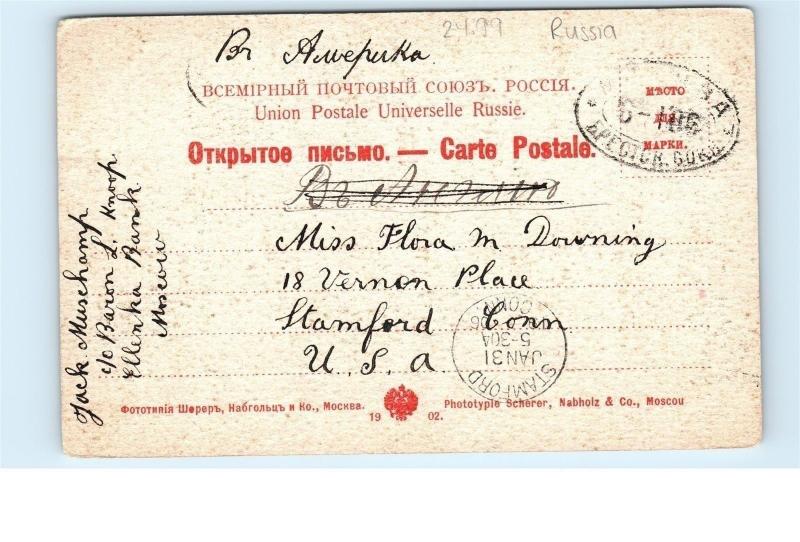 24.99 Russia
Въ Америка
ВСЕМІРНЫЙ ПОЧТОВЫЙ СОЮЗЪ. РОССІЯ.
Union Postale Universelle Russie.
МѢСТО
ДЛЯ
МАРКИ.
Открытое письмо. — Carte Postale.
Въ Англію
Miss Flora M Downing
18 Vernon Place
Stamford Conn
U. S. A
Jack Muschamp
c/o Baron L. Knoop
Ellenka Bank
Moscow
STAMFORD
JAN 31
5-30A
CONN.
Фототипія Шереръ, Набгольцъ и Ко., Москва.
19 02.
Phototypie Scherer, Nabholz & Co., Moscou